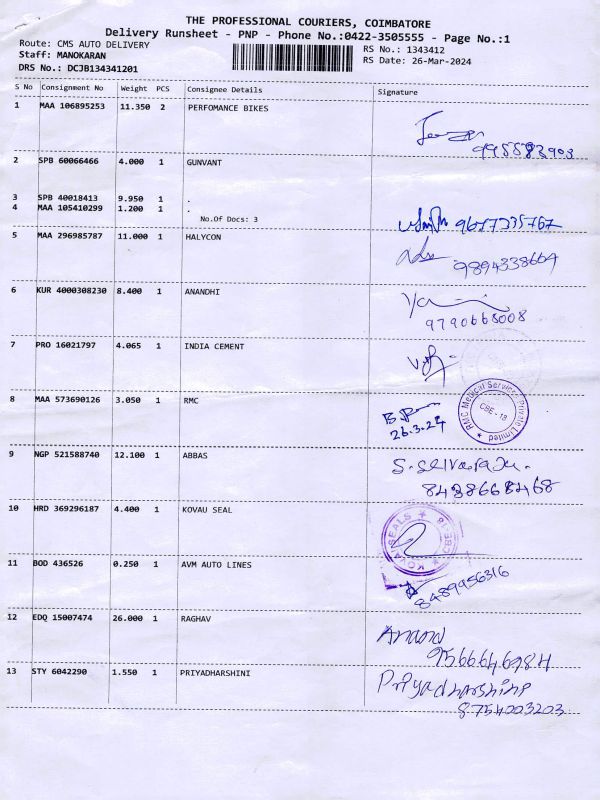 THE PROFESSIONAL COURIERS, COIMBATORE
Delivery Runsheet - PNP - Phone No.:0422-3505555 - Page No.:1
Route: CMS AUTO DELIVERY
Staff: MANOKARAN
DRS No.: DCJB134341201
RS No.: 1343412
RS Date: 26-Mar-2024
S No Consignment No Weight PCS Consignee Details Signature
1 MAA 106895253 11.350 2 PERFOMANCE BIKES
2 SPB 60066466 4.000 1 GUNVANT
3 SPB 40018413 9.950 1 .
4 MAA 105410299 1.200 1 .
No.Of Docs: 3
9677335767
5 MAA 296985787 11.000 1 HALYCON
9894338664
6 KUR 4000308230 8.400 1 ANANDHI
9790668008
7 PRO 16021797 4.065 1 INDIA CEMENT
8 MAA 573690126 3.050 1 RMC
26.3.24
RMC Medical Services Private Limited
CBE - 18
9 NGP 521588740 12.100 1 ABBAS
S. Selvaraju.
10 HRD 369296187 4.400 1 KOVAU SEAL
KOVAI SEALS
11 BOD 436526 0.250 1 AVM AUTO LINES
8489956316
12 EDQ 15007474 26.000 1 RAGHAV
Anand
13 STY 6042290 1.550 1 PRIYADHARSHINI
Priyadharshini
8754003203